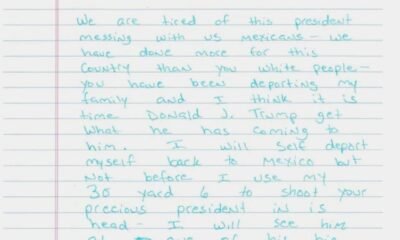 We are tired of this president
messing with us mexicans – we
have done more for this
Country than you white people –
you have been deporting my
family and I think it is
time Donald J. Trump get
What he has coming to
him. I will self deport
myself back to Mexico but
not before I use my
30 yard 6 to shoot your
precious president in is
head – I will see him